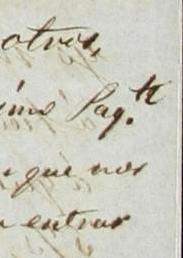 otros,
imo Pag.te
que nos
entrar